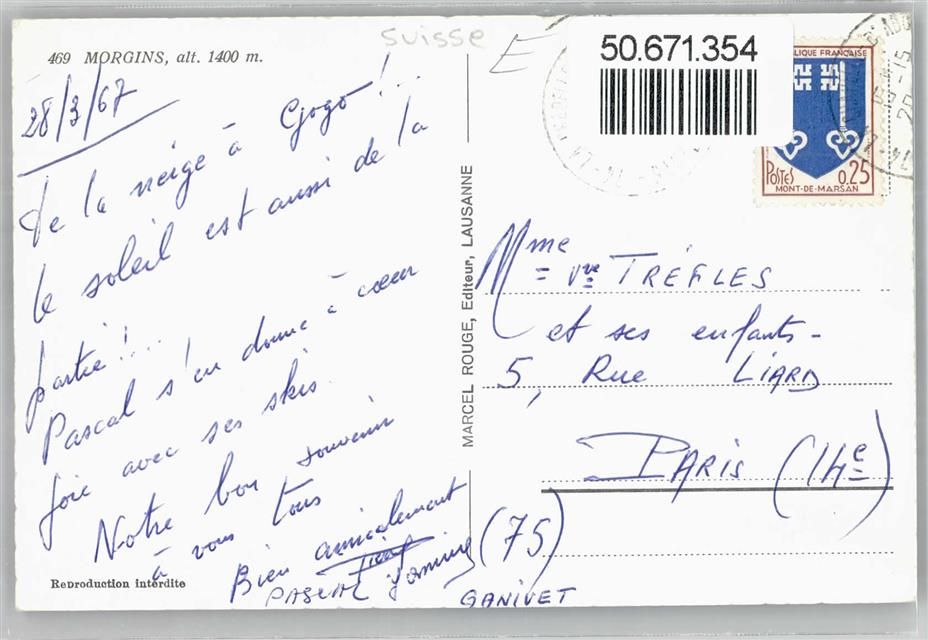 Suisse
E
469 MORGINS, alt. 1400 m.
28/3/67
De la neige à Gogo !...
le soleil est aussi de la
partie !...
Pascal s'en donne à cœur
joie avec ses skis.
Notre bon souvenir
à vous tous
Bien amicalement
PASCAL
GANIVET
Reproduction interdite
MARCEL ROUGE, Editeur, LAUSANNE
50.671.354
BLIQUE FRANÇAISE
POSTES 0.25
MONT-DE-MARSAN
Mme
= Vve TRÉFLES
et ses enfants-
5, Rue LIARD
PARIS (14e)
(75)